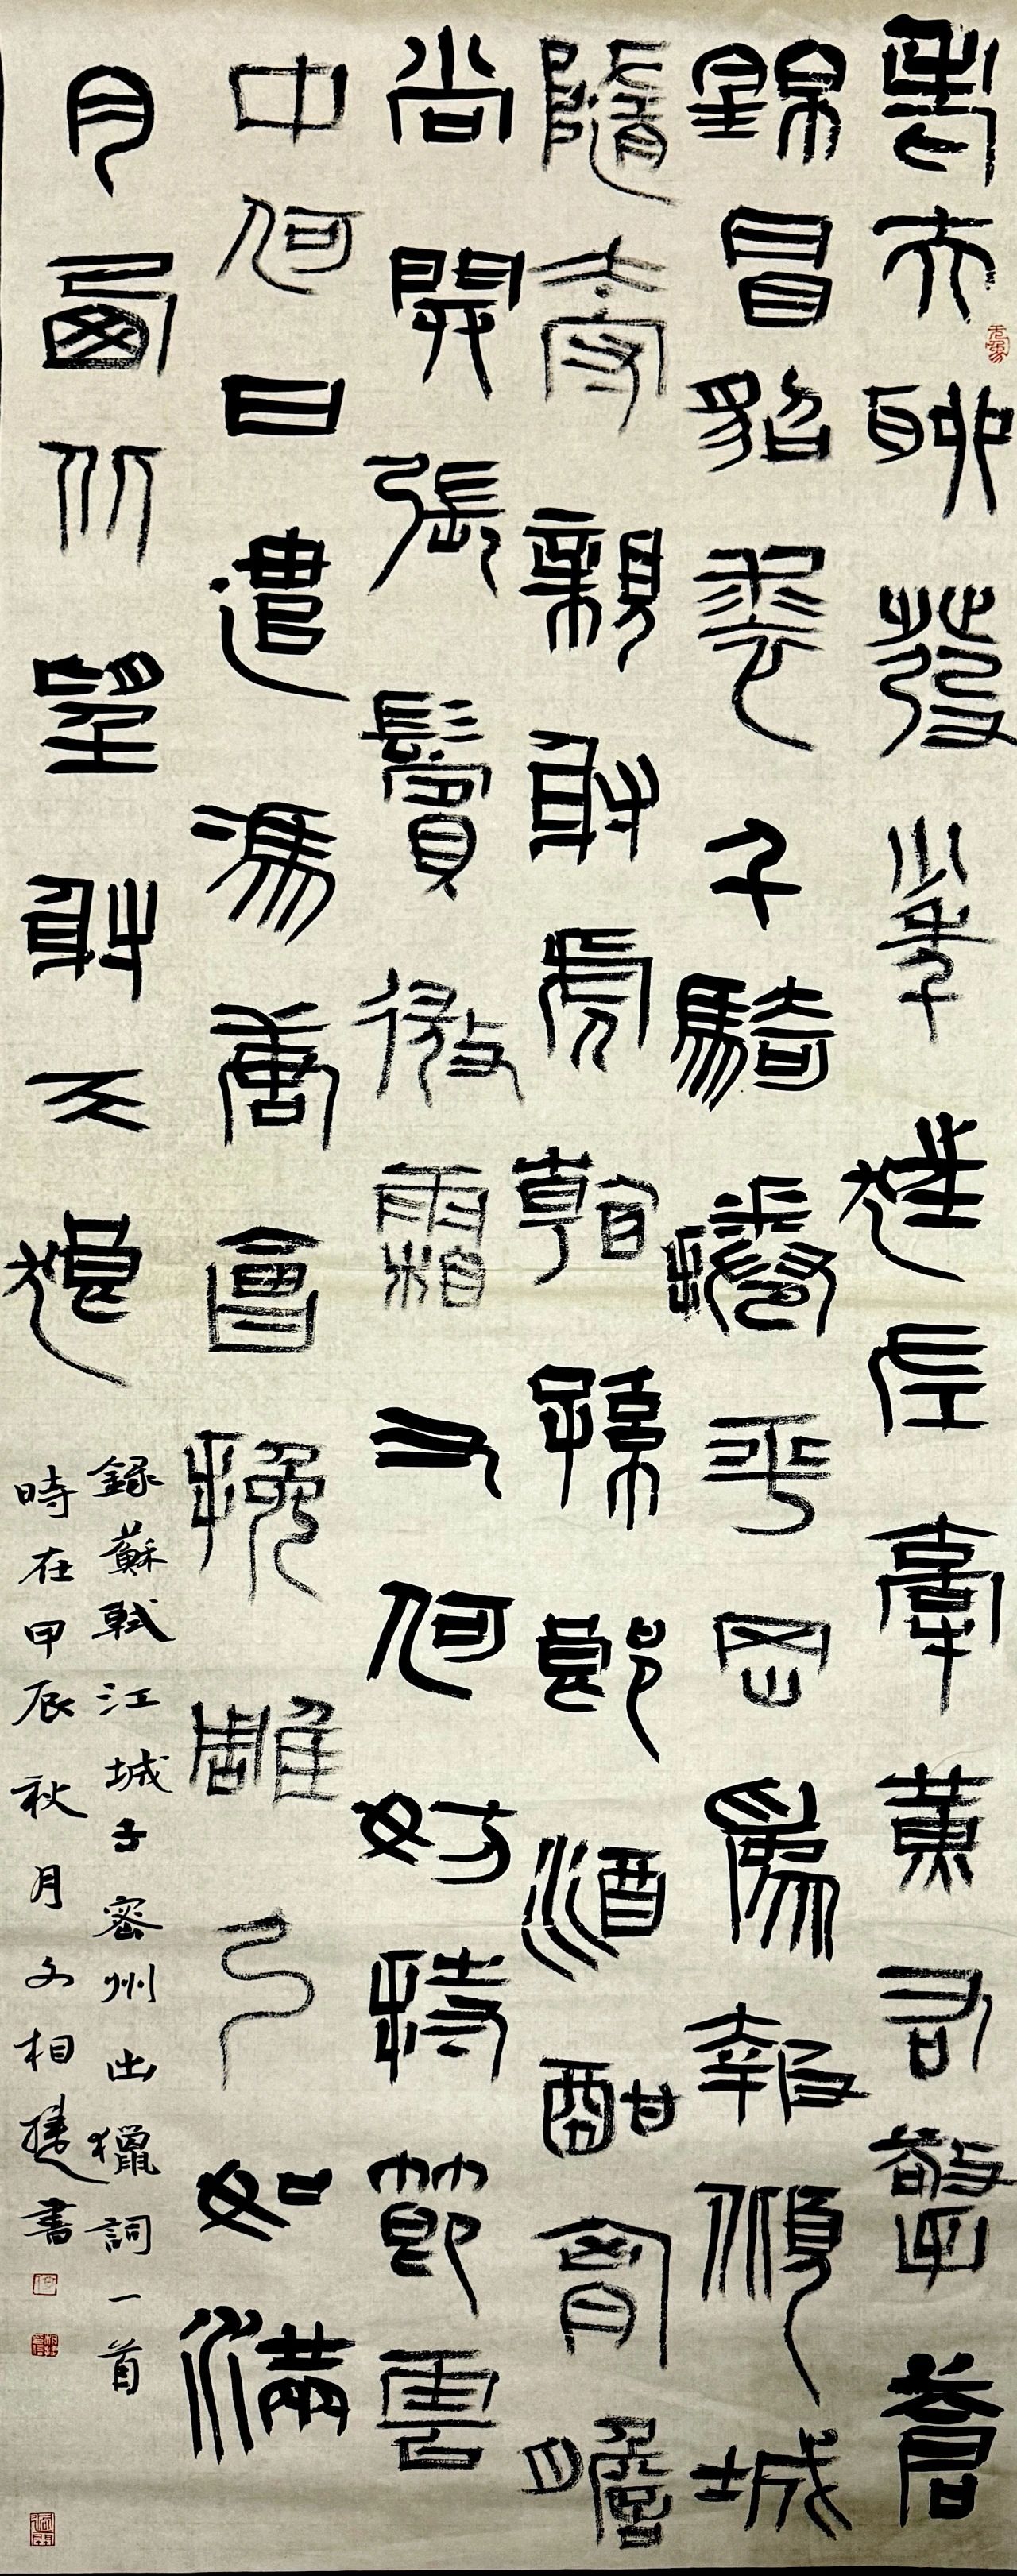 老夫聊發少年狂左牽黃右擎蒼
錦冒貂裘千騎捲平岡為報傾城
隨太守親射虎看孫郎酒酣胷膽
尚開張鬢微霜又何妨持節雲
中何日遣馮唐會挽雕弓如滿
月西北望射天狼
錄蘇軾江城子密州出獵詞一首
時在甲辰秋月文相書